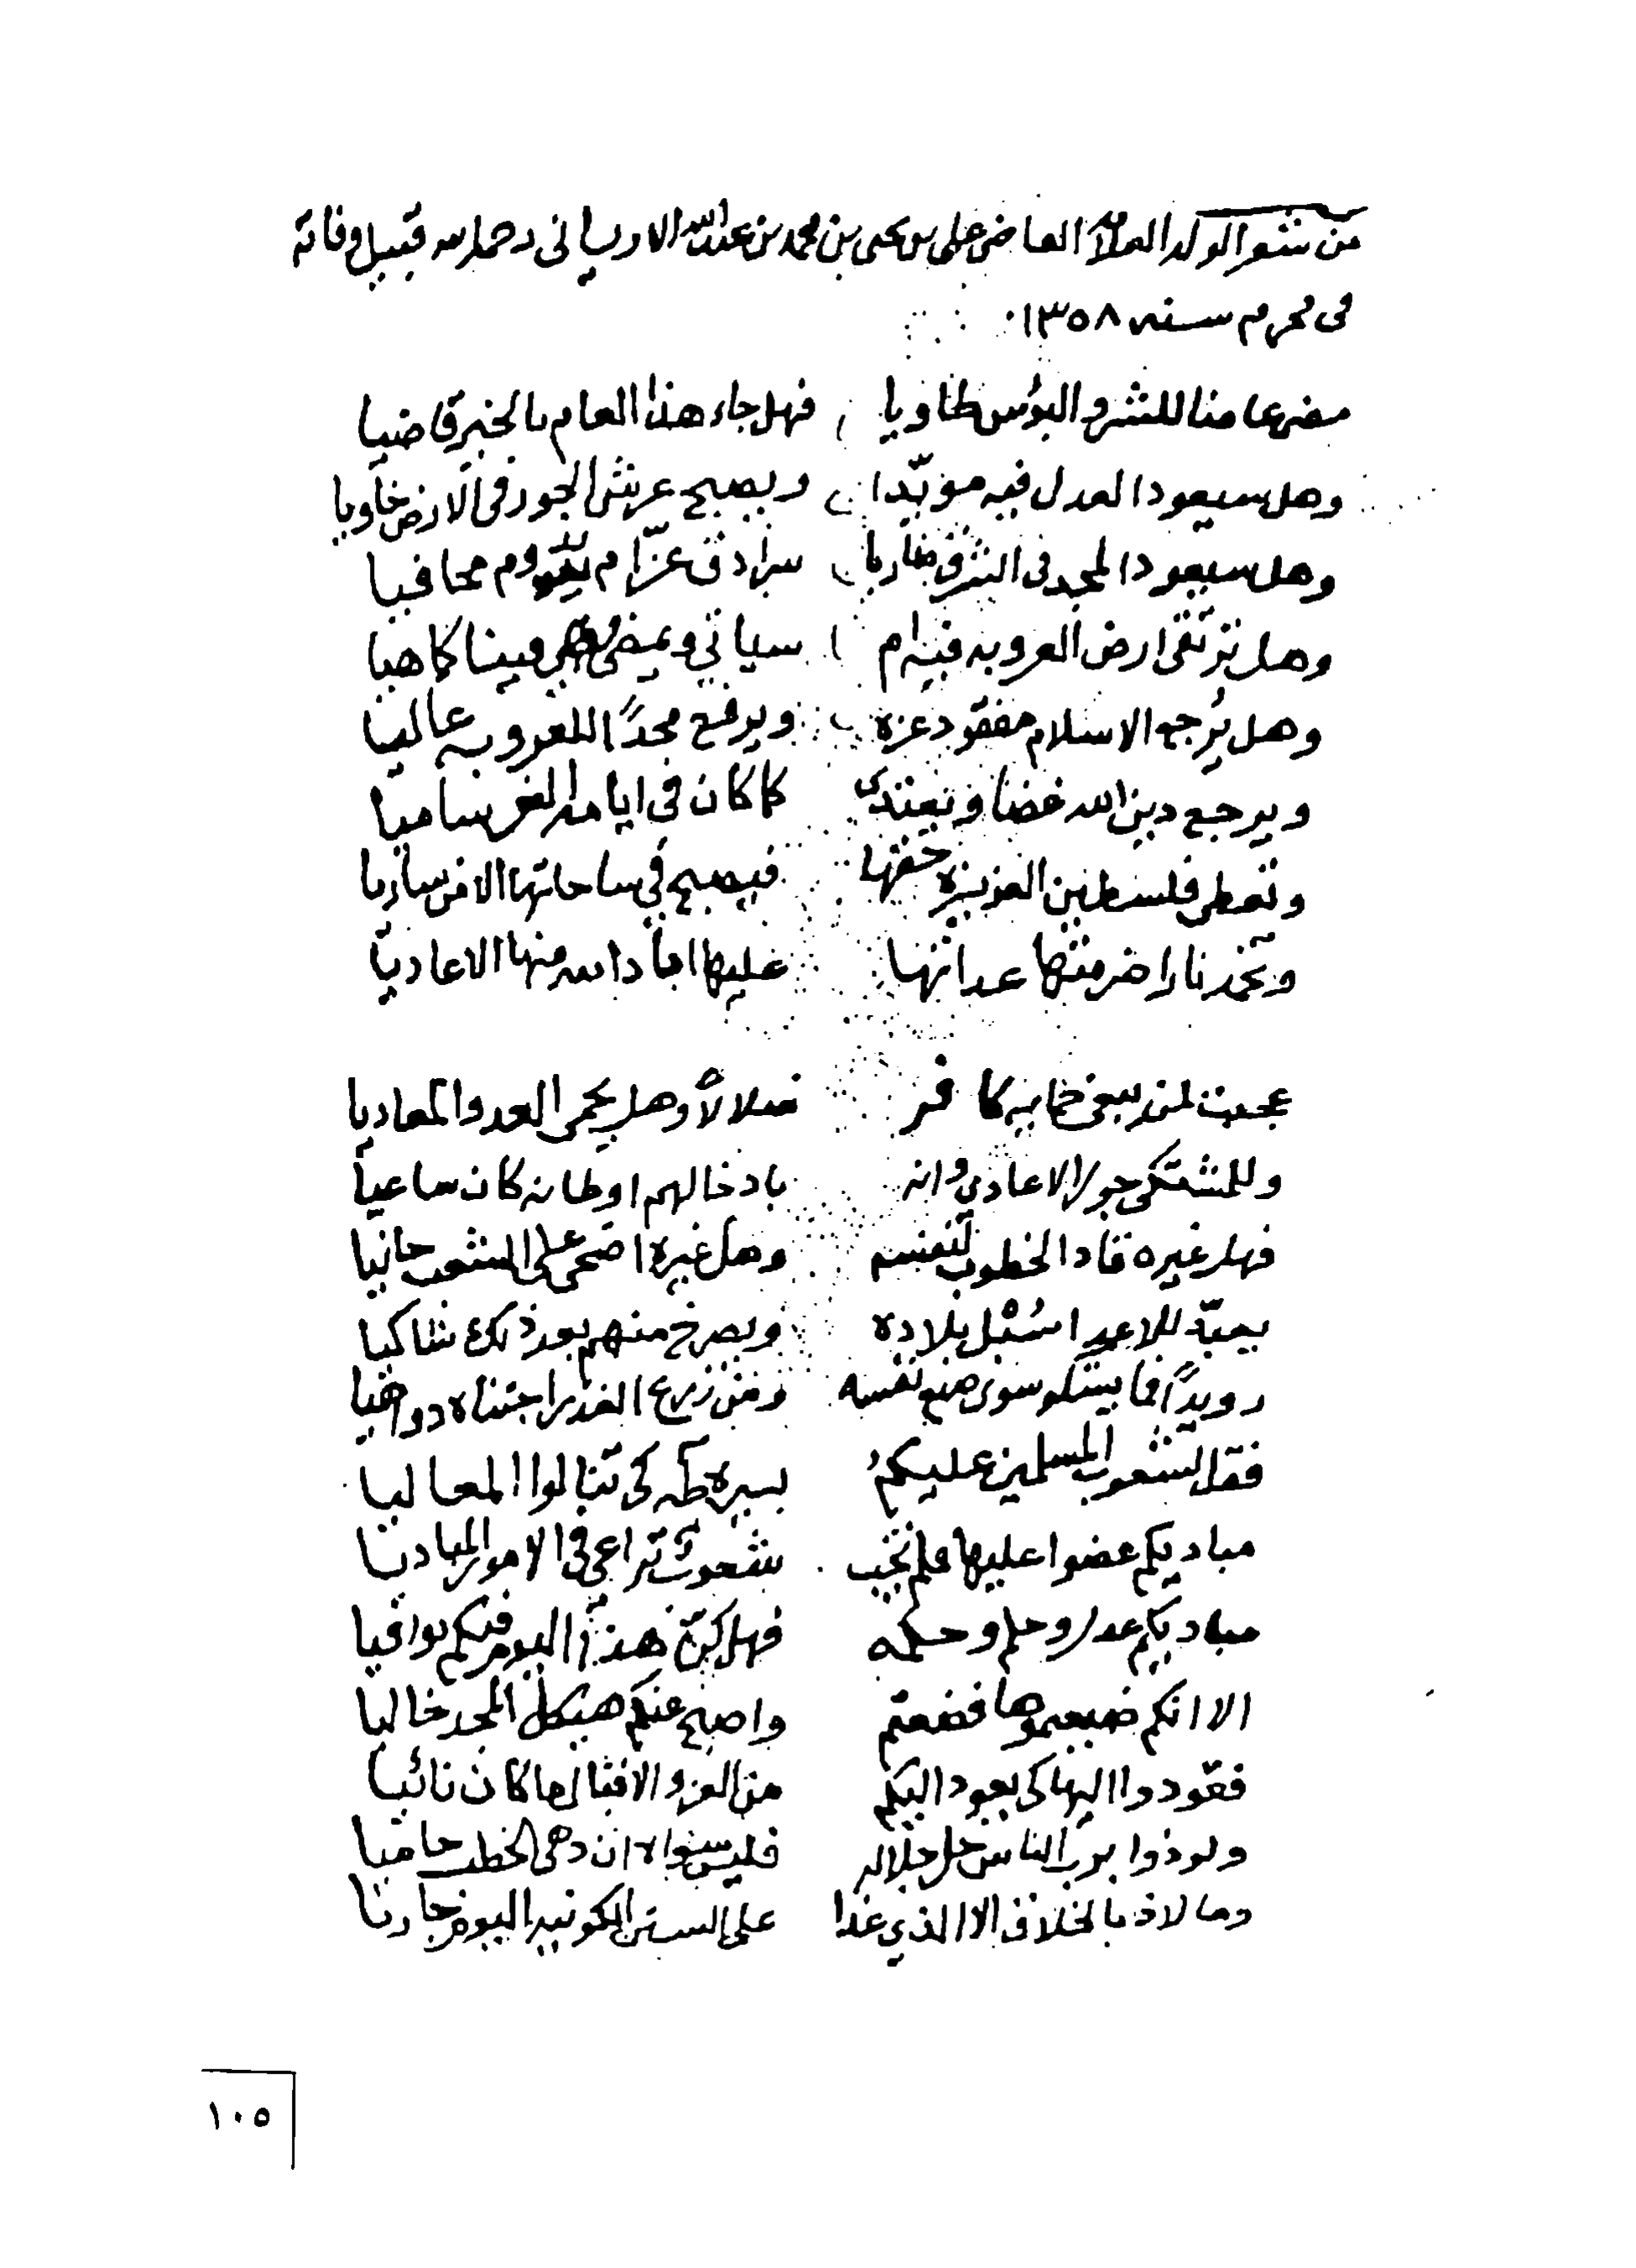 من شعر الولد العلامة القاضي علي بن يحيى بن محمد بن عبدالله الارياني رحمه الله قبيل وفاته
في محرم سنه ١٣٥٨
مضى عامنا للشر والبؤس طاويا فهل جاء هذا العام بالخير قاضيا
وهل سيعود العدل فيه مؤيّدا ويصبح عرش الجور في الارض خاويا
وهل سيعود المجد في الشرق ضاربا سرادق عزّ ام يقوم محافيا
وهل ترتقي ارض العروبه فيه ام سياتي ويمضي وهي فينا كاهيا
وهل يُرجع الاسلام مفقود عزه ويرفع مجداً للعروبه عاليا
ويرجع دين الله غضا ونغتدي كما كان في ايامه الغر ساميا
وتعطى فلسطين العزيزة حقها فيصبح في ساحاتها الامن ساريا
وتخمد نارا ضرمتها عداتها عليها اباد الله منها الاعاديا
عجبت لمن يبغي حمايه كافر ضلالاً وهل يحمي العدو المعاديا
وللمشتكي جور الاعادي وانه بادخالهم اوطانه كان ساعيا
فهل غيره قاد الخطوب لنفسه وهل غيره اضحى على الشعب جانيا
يعبّد للاعدا سُبْل بلاده ويصرخ منهم بعد ذلك شاكيا
رويداً فما يشكو سوى صنع نفسه ومن زرع الغدر اجتناه دواهيا
فقل لشعوب المسلمين عليكمُ بسيرة طه كي تنالوا المعاليا
مباديكم عضوا عليها فلم تخب شعوب تراعي في الامور المباديا
مباديكم عدل وحلم وحكمه فهل كن هذا اليوم فيكم بواقيا
الا انكم ضيعتموها فضعتم واصبح عنكم هيكل المجد خاليا
فعودوا اليها كي يعود اليكم من العز والاقبال ما كان نائيا
ولوذوا برب الناس جل جلاله فليس سواه ان دهى الخطب حاميا
وما لاذ بالخلاق الا الذي غدا على السنن الكونيه اليوم جاريا
١٠٥